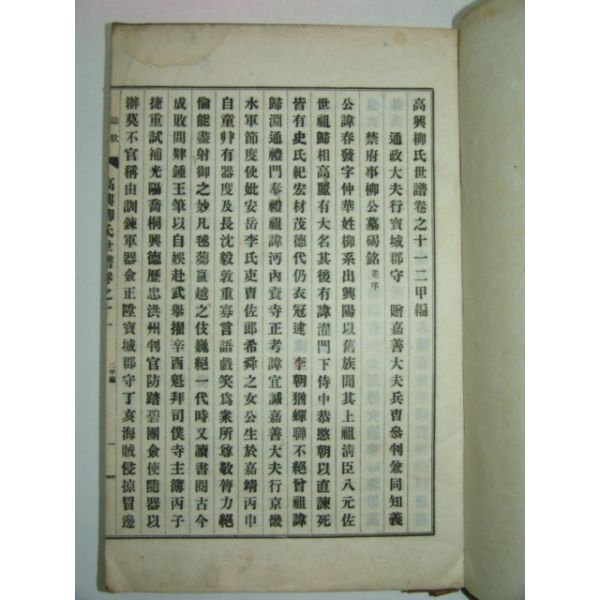 高興柳氏世譜卷之十一 二甲編
通政大夫行寶城郡守 贈嘉善大夫兵曹參判兼同知義
禁府事柳公墓碣銘 並序
公諱春發字仲華姓柳系出興陽以舊族聞其上祖淸臣八元佐
世祖歸相高麗有大名其後有諱濯門下侍中恭愍朝以直諫死
皆有史氏紀宏材茂德代仍衣冠逮 李朝猶蟬聯不絕曾祖諱
歸淵通禮門奉禮祖諱沔內資寺正考諱宜諴嘉善大夫行京畿
水軍節度使妣安岳李氏吏曹佐郎希舜之女公生於嘉靖丙申
自童丱有器度及長沈毅敦重寡言語戲笑爲衆所尊敬膂力絕
倫能盡射御之妙凡毬蹴贏越之伎巍絕一代時又讀書閱古今
成敗間肄鍾王筆以自娛赴武擧擢辛酉魁拜司僕寺主簿丙子
捷重試補光陽喬桐興德歷忠洪州判官防踏碧團僉使隨器以
辦莫不官稱由訓鍊軍器僉正陞寶城郡守丁亥海賊侵掠冒邊
誌狀 高興柳氏世譜卷之十一 二甲編 一